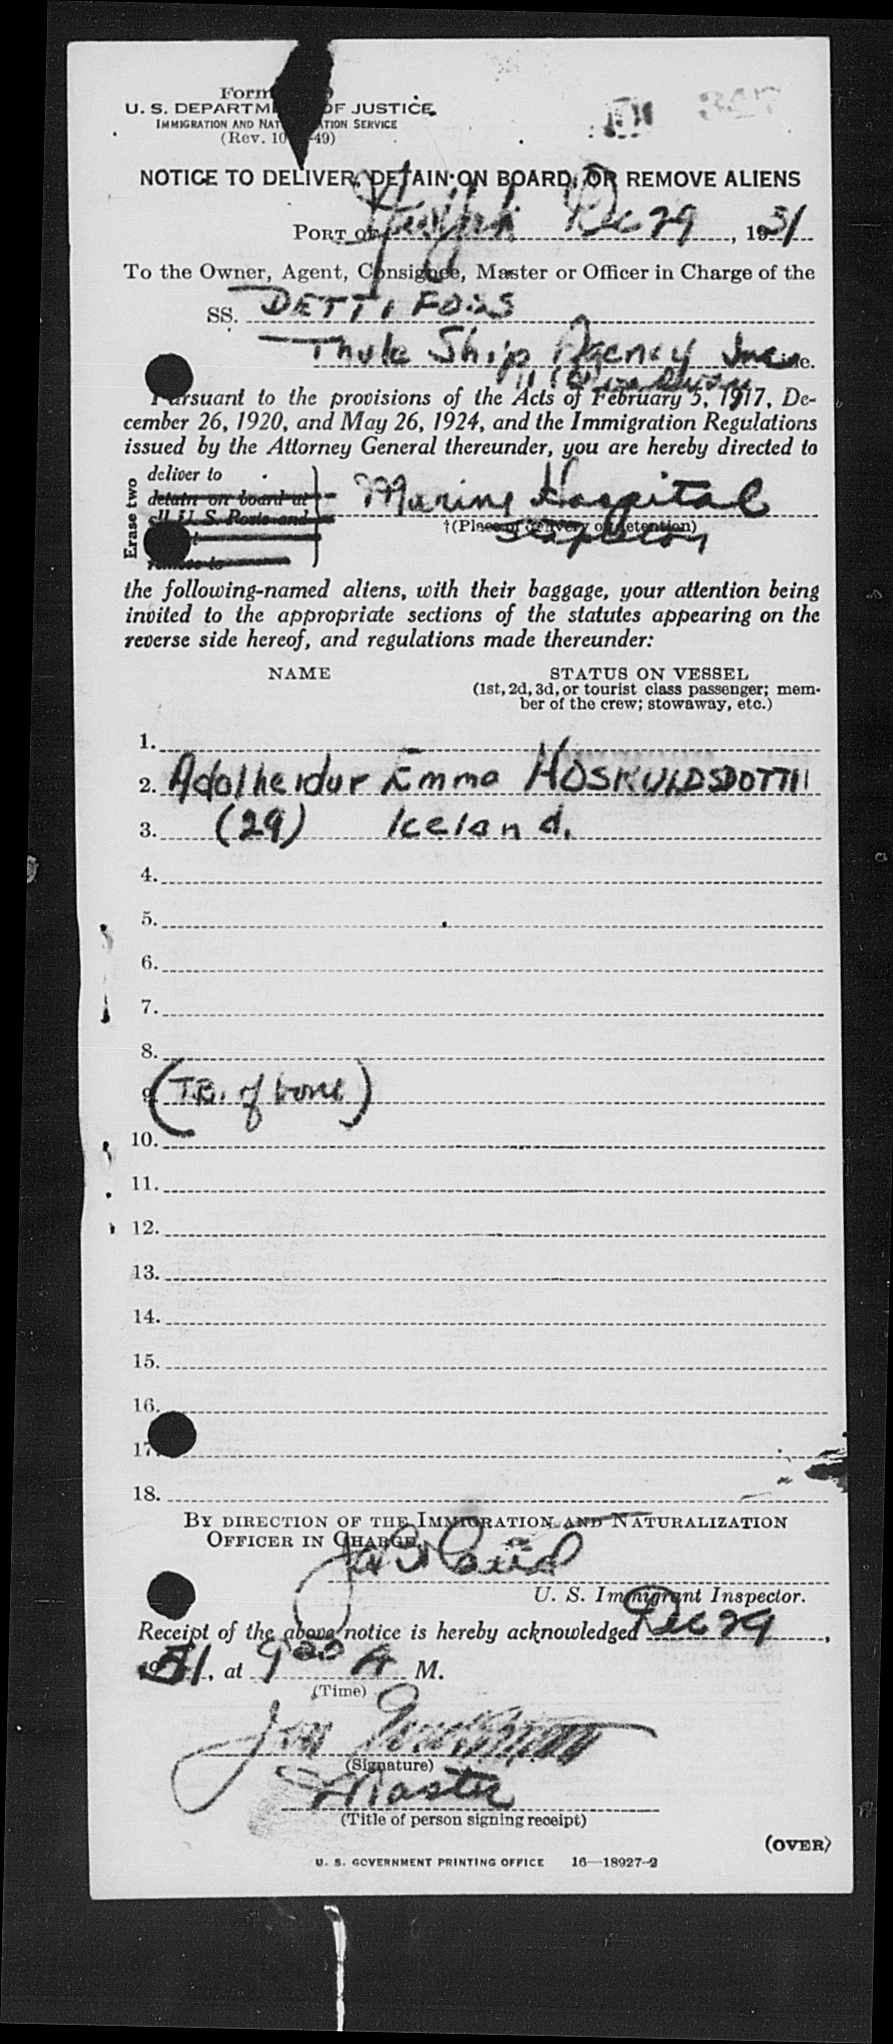 Form
U. S. DEPARTM OF JUSTICE
IMMIGRATION AND NAT TION SERVICE
(Rev. 10 -49)
NOTICE TO DELIVER, DETAIN ON BOARD, OR REMOVE ALIENS
PORT OF New York Dec 29, 1951
To the Owner, Agent, Consignee, Master or Officer in Charge of the
SS. DETTIFOSS
Thule Ship Agency Inc Line.
11
Pursuant to the provisions of the Acts of February 5, 1917, De-
cember 26, 1920, and May 26, 1924, and the Immigration Regulations
issued by the Attorney General thereunder, you are hereby directed to
Erase two
deliver to
detain on board at
all U. S. Ports and
remove to
Marine Hospital
†(Place of delivery or detention)
Stapleton
the following-named aliens, with their baggage, your attention being
invited to the appropriate sections of the statutes appearing on the
reverse side hereof, and regulations made thereunder:
NAME STATUS ON VESSEL
(1st, 2d, 3d, or tourist class passenger; mem-
ber of the crew; stowaway, etc.)
1.
2. Adalheidur Emma HOSKULDSDOTTII
3. (29) Iceland.
4.
5.
6.
7.
8.
9. (T.B. of bone)
10.
11.
12.
13.
14.
15.
16.
17.
18.
BY DIRECTION OF THE IMMIGRATION AND NATURALIZATION
OFFICER IN CHARGE,
U. S. Immigrant Inspector.
Receipt of the above notice is hereby acknowledged Dec 29,
1951, at 9 00 A M.
(Time)
Jon
(Signature)
Master
(Title of person signing receipt)
(OVER)
U. S. GOVERNMENT PRINTING OFFICE 16—18927-2